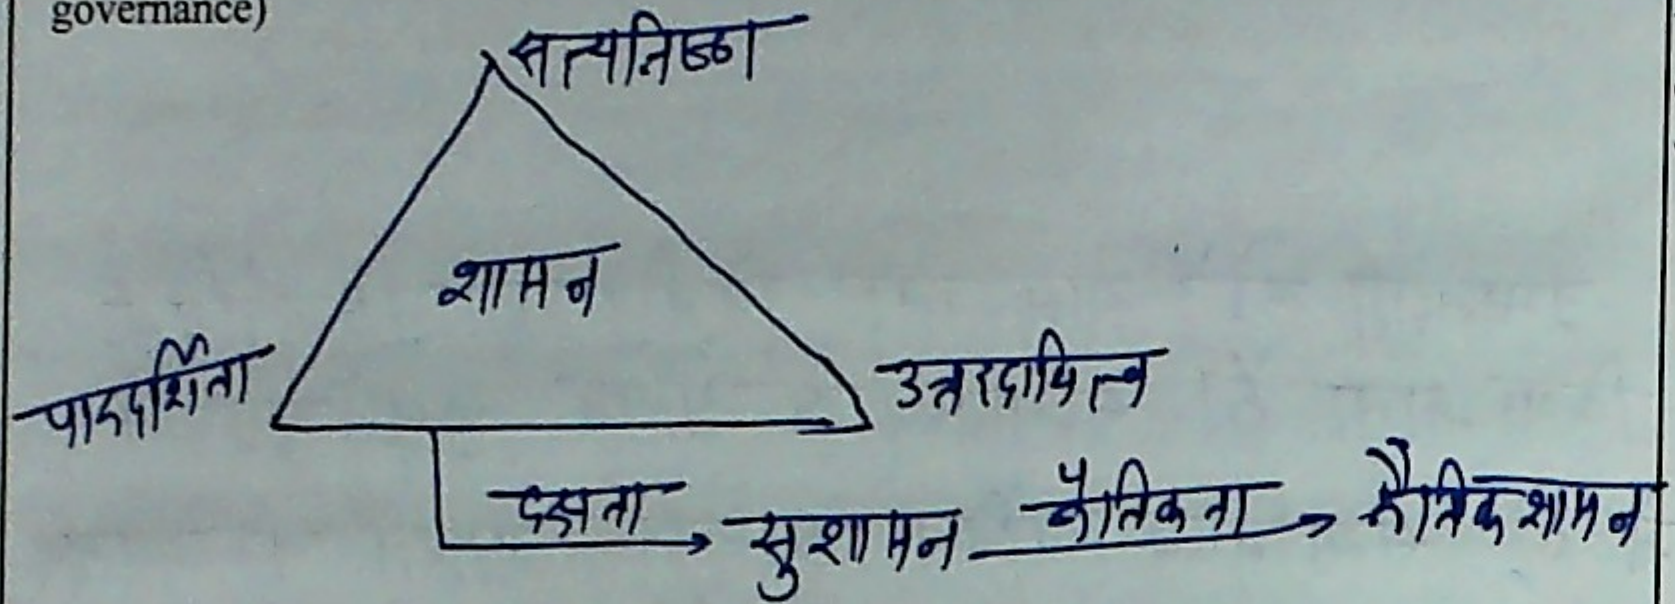 governance)
सत्यनिष्ठा
शासन
पारदर्शिता
उत्तरदायित्व
दक्षता
सुशासन नैतिकता नैतिक शासन